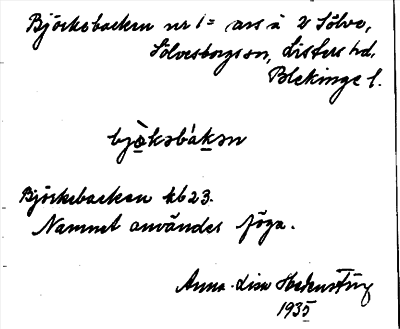 Björkebacken nr 1 = ars å 2 Sölve,
Sölvesborgs sn, Listers hd,
Blekinge l.
bjö̀kəbákən
Björkebacken kb 23.
Namnet användes föga.
Anna-Lisa
1935